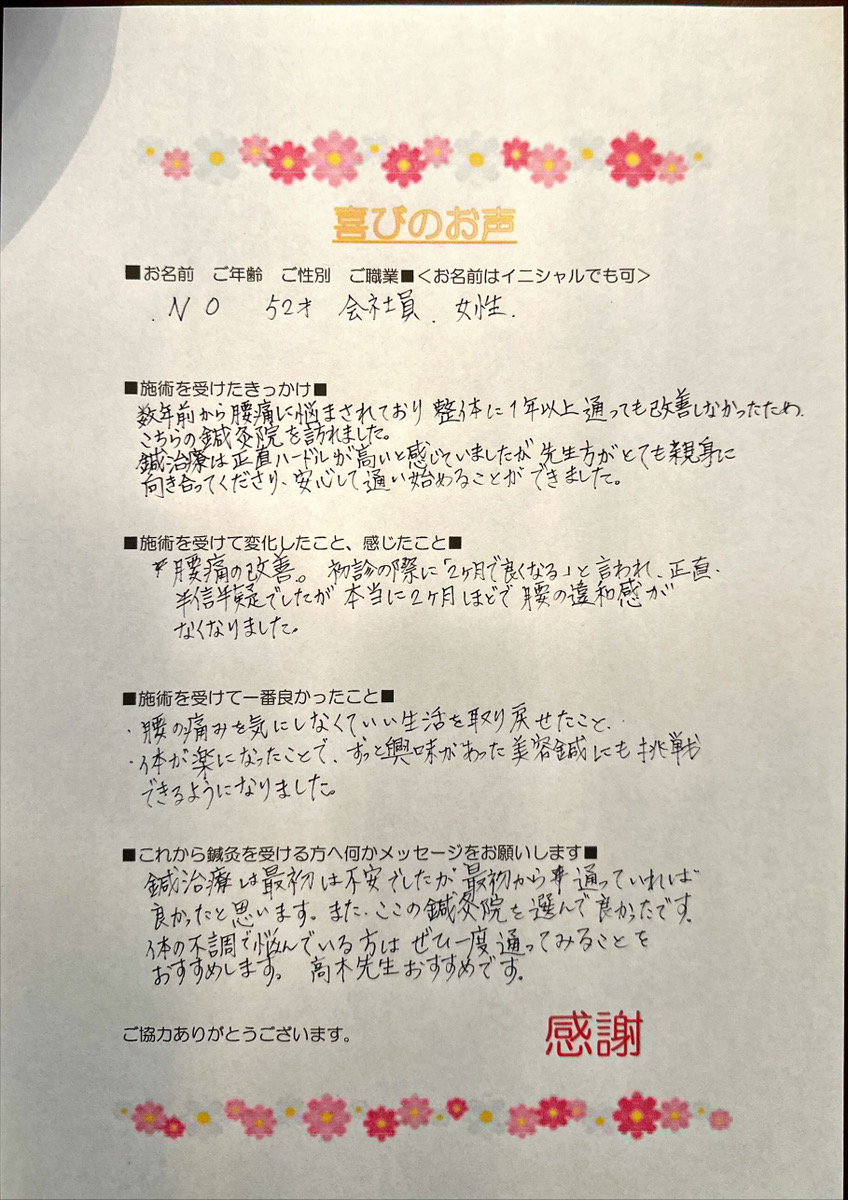 喜びのお声
■お名前 ご年齢 ご性別 ご職業■<お名前はイニシャルでも可>
. N O 52才 会社員. 女性.
■施術を受けたきっかけ■
数年前から腰痛に悩まされており 整体に1年以上通っても改善しなかったため.
こちらの鍼灸院を訪れました。
鍼治療は正直ハードルが高いと感じていましたが 先生方がとても親身に
向き合ってくださり、安心して通い始めることができました。
■施術を受けて変化したこと、感じたこと■
腰痛の改善。 初診の際に「2ヶ月で良くなる」と言われ、正直.
半信半疑でしたが 本当に2ヶ月ほどで腰の違和感が
なくなりました。
■施術を受けて一番良かったこと■
・腰の痛みを気にしなくていい生活を取り戻せたこと.
・体が楽になったことで、ずっと興味があった美容鍼にも挑戦
できるようになりました。
■これから鍼灸を受ける方へ何かメッセージをお願いします■
鍼治療は最初は不安でしたが 最初から 通っていれば
良かったと思います。また、ここの鍼灸院を選んで良かったです。
体の不調で悩んでいる方は ぜひ一度通ってみることを
おすすめします。 高木先生おすすめです。
ご協力ありがとうございます。
感謝